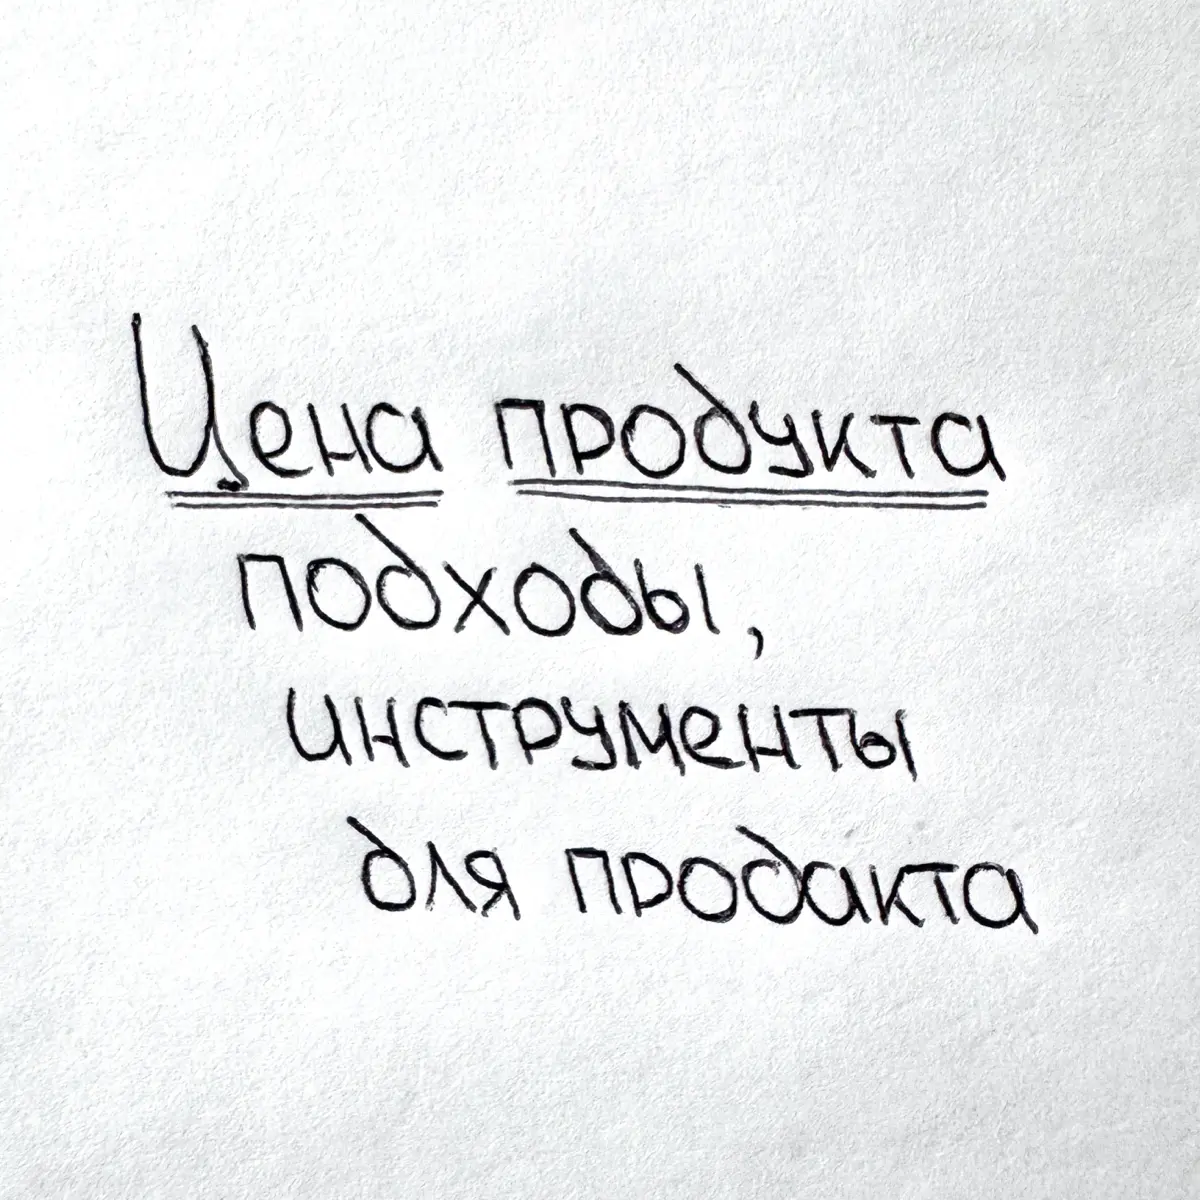 Цена продукта
подходы,
инструменты
для продакта